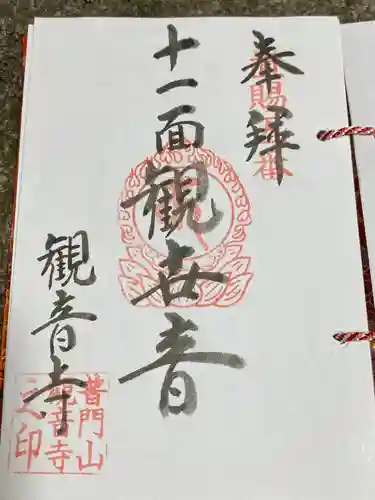 奉拝
十一面観世音
観音寺
普門山
観音寺
之印